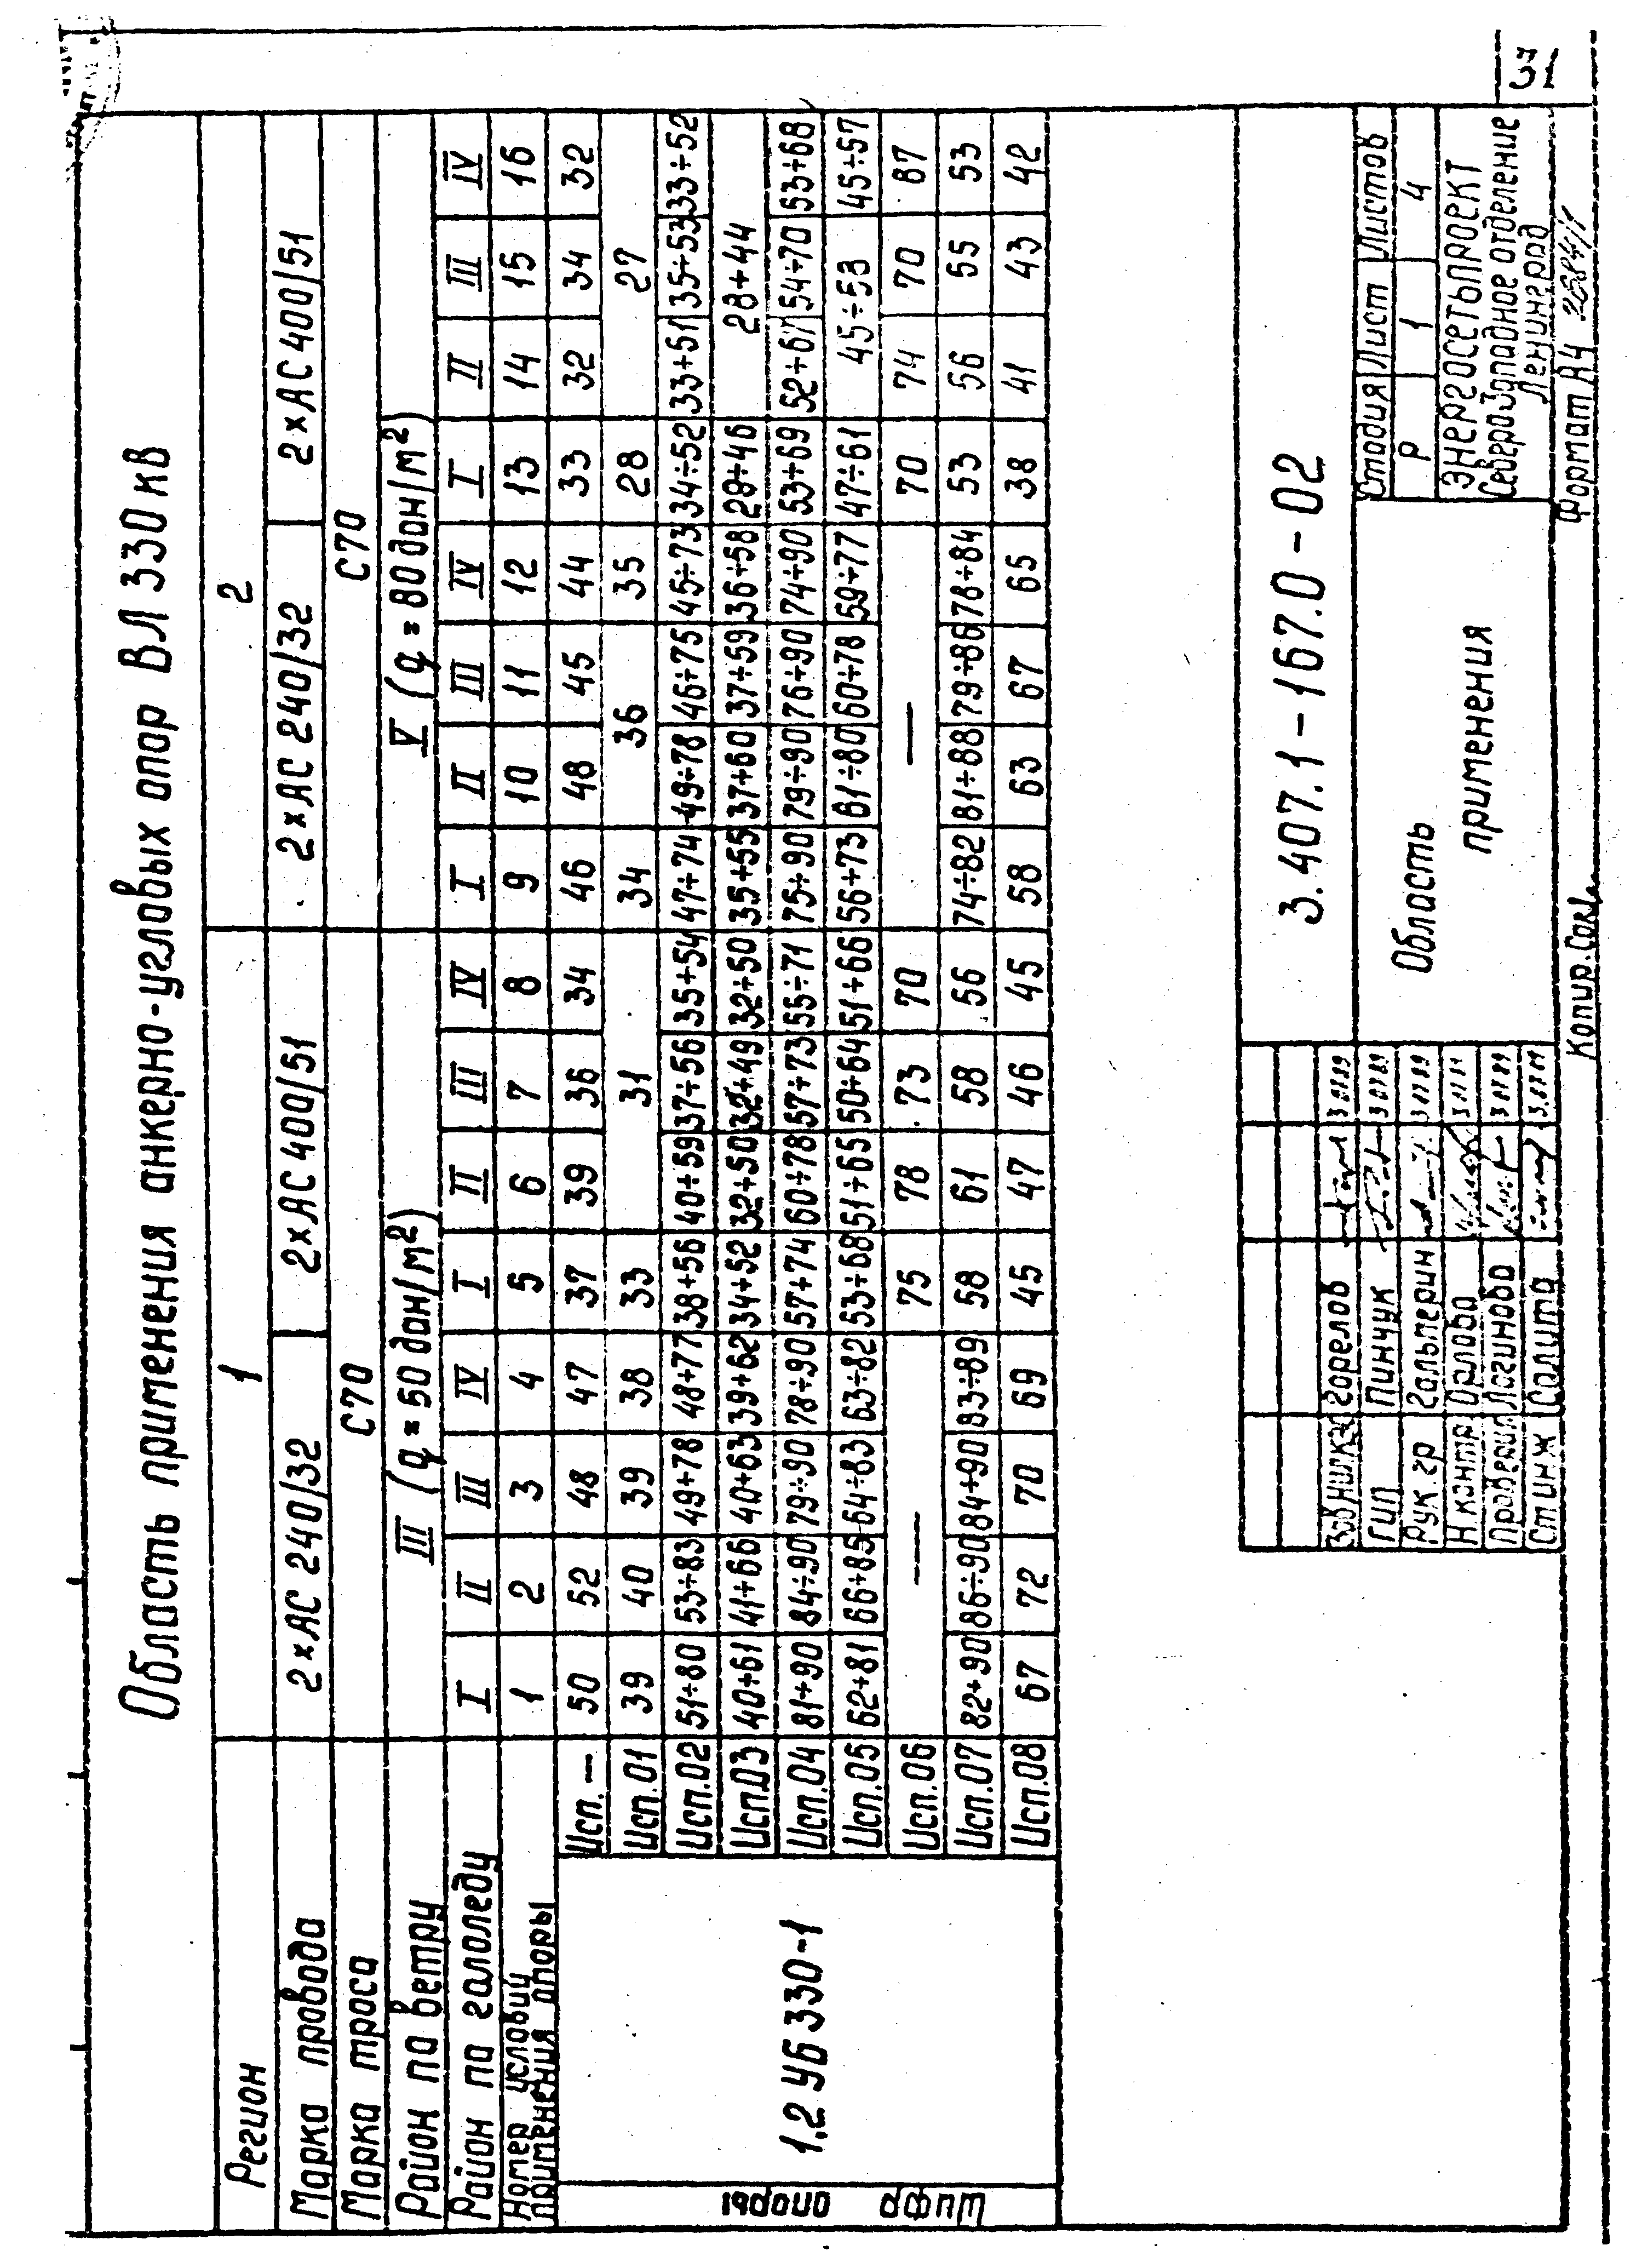 31
Область применения анкерно-угловых опор ВЛ 330 кв
Регион 1 2
Марка провода 2×АС 240/32 2×АС 400/51 2×АС 240/32 2×АС 400/51
Марка троса С70 С70
Район по ветру III (q = 50 дан/м²) V (q = 80 дан/м²)
Район по гололеду I II III IV I II III IV I II III IV I II III IV
Номер условий применения опоры 1 2 3 4 5 6 7 8 9 10 11 12 13 14 15 16
Шифр опоры
1,2 УБ 330-1
Исп. — 50 52 48 47 37 39 36 34 46 48 45 44 33 32 34 32
Исп.01 39 40 39 38 33 31 34 36 35 28 27
Исп.02 51÷80 53÷83 49÷78 48÷77 38÷56 40÷59 37÷56 35÷54 47÷74 49÷78 46÷75 45÷73 34÷52 33÷51 35÷53 33÷52
Исп.03 40÷61 41÷66 40÷63 39÷62 34÷52 32÷50 32÷49 32÷50 35÷55 37÷60 37÷59 36÷58 29÷46 28÷44
Исп.04 81÷90 84÷90 79÷90 78÷90 57÷74 60÷78 57÷73 55÷71 75÷90 79÷90 76÷90 74÷90 53÷69 52÷67 54÷70 53÷68
Исп.05 62÷81 66÷85 64÷83 63÷82 53÷68 51÷65 50÷64 51÷66 56÷73 61÷80 60÷78 59÷77 47÷61 45÷53 45÷57
Исп.06 — 75 78 73 70 — 70 74 70 87
Исп.07 82÷90 86÷90 84÷90 83÷89 58 61 58 56 74÷82 81÷88 79÷86 78÷84 53 56 55 53
Исп.08 67 72 70 69 45 47 46 45 58 63 67 65 38 41 43 42
3.407.1-167.0-02
Зав НИЛКЭС Горелов
ГИП Пинчук
Рук. гр Гальперин
Н.контр Орлова
Проверил Логинова
Ст инж Салита
Область
применения
Стадия Лист Листов
Р 1 4
ЭНЕРГОСЕТЬПРОЕКТ
Северо-Западное отделение
Ленинград
Копир.
Формат А4